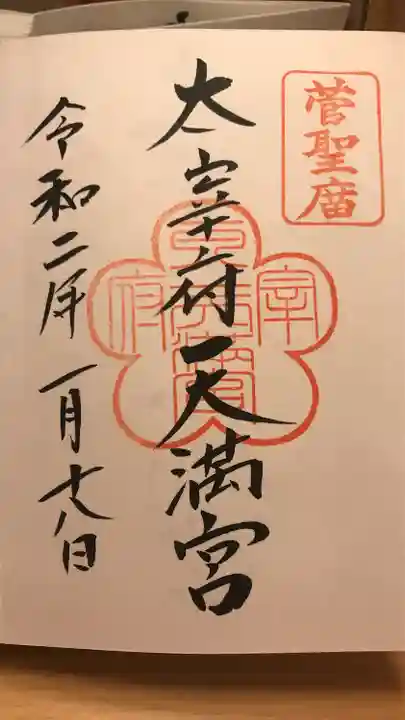 菅聖廟
太宰府天満宮
令和二年一月十八日